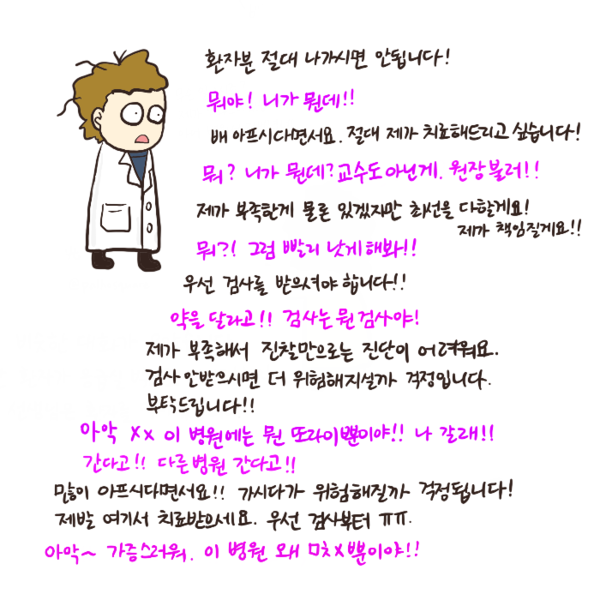 환자분 절대 나가시면 안됩니다!
뭐야! 니가 뭔데!!
배 아프시다면서요. 절대 제가 치료해드리고 싶습니다!
뭐? 니가 뭔데? 교수도 아닌게. 원장불러!!
제가 부족한게 물론 있겠지만 최선을 다할게요!
제가 책임질게요!!
뭐?! 그럼 빨리 낫게해봐!!
우선 검사를 받으셔야 합니다!!
약을 달라고!! 검사는 뭔 검사야!
제가 부족해서 진찰만으로는 진단이 어려워요.
검사 안받으시면 더 위험해지실까 걱정입니다.
부탁드립니다!!
아악 xx 이 병원에는 뭔 또라이뿐이야!! 나 갈래!!
간다고!! 다른병원 간다고!!
많이 아프시다면서요!! 가시다가 위험해질까 걱정됩니다!
제발 여기서 치료받으세요. 우선 검사부터 ㅠㅠ.
아악~ 가증스러워. 이 병원 왜 미x뿐이야!!